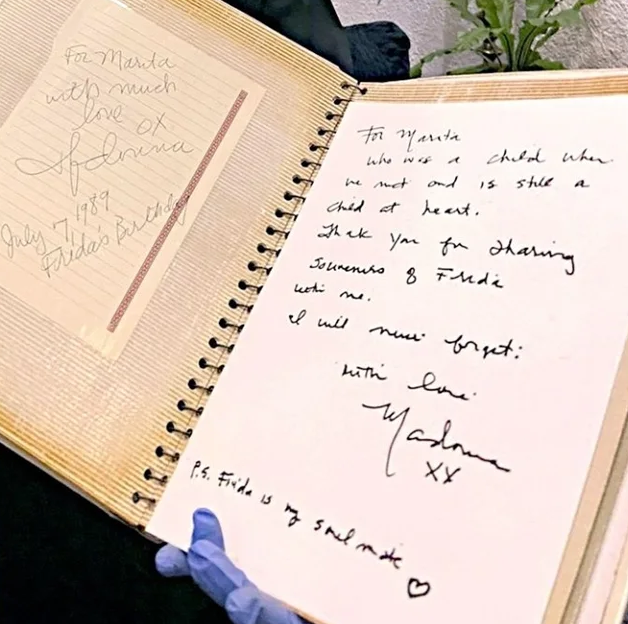 For Marita
with much
love
OX
Madonna
July 7, 1989
Frida's Birthday
For Marita
who was a child when
we met and is still a
child at heart.
Thak you for sharing
of Frida
with me.
I will never forget:
with love
Madonna
XX
P.S. Frida is my soul mate